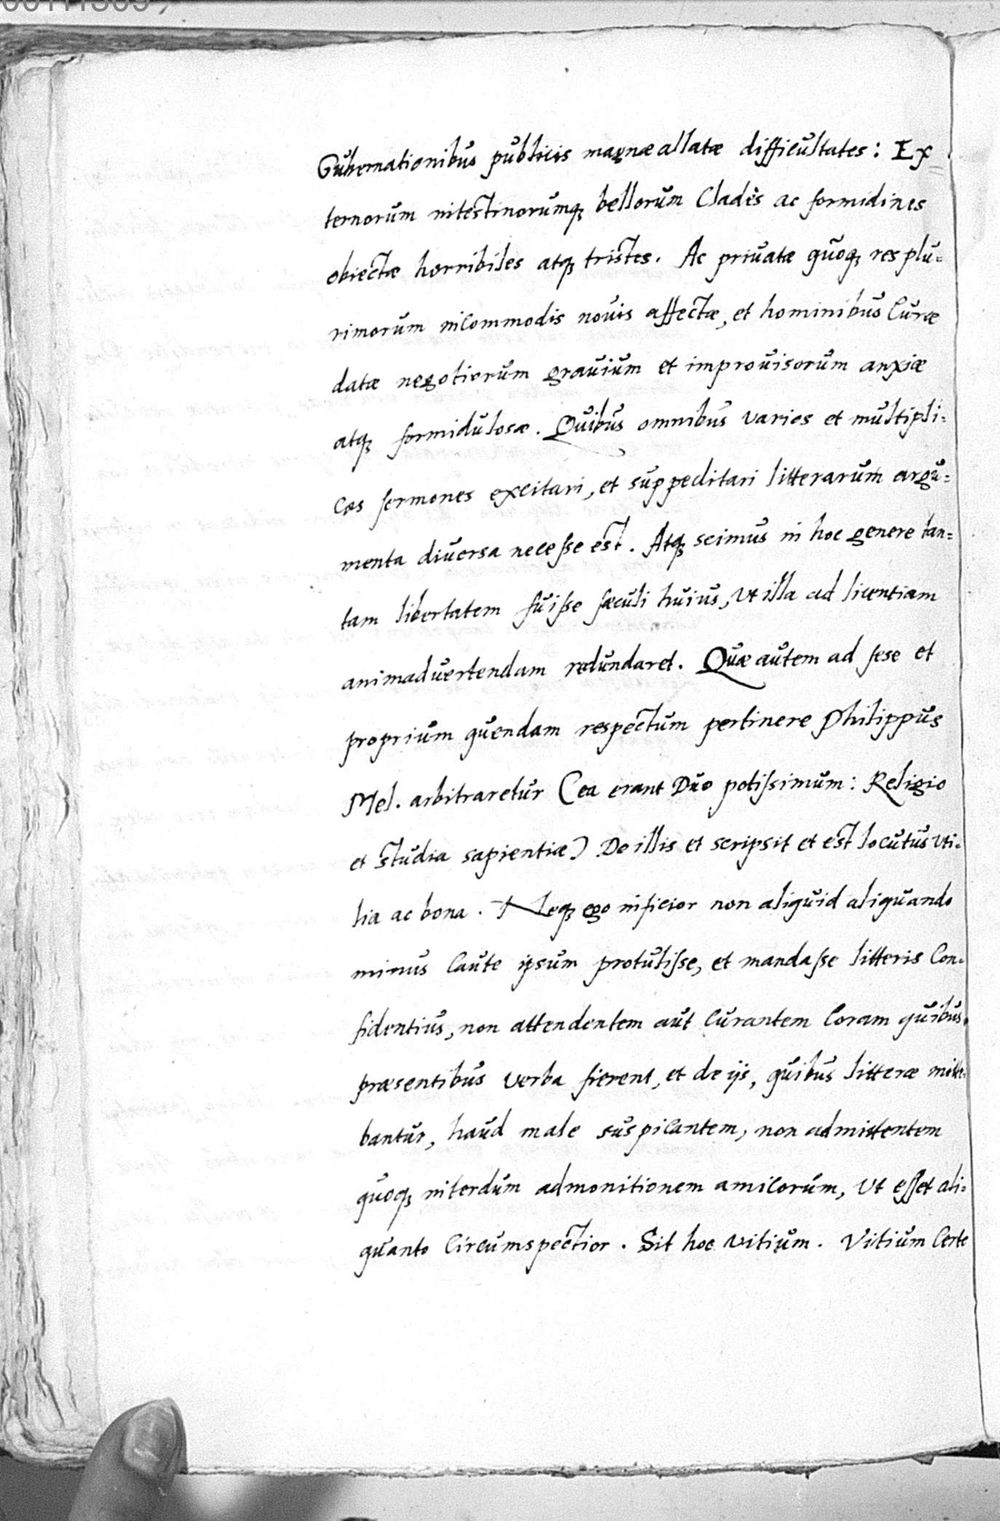 Gubernationibus publicis magnæ allatæ difficultates: Ex=
ternorum intestinorumq; bellorum Clades ac formidines
obiectæ horribiles atq; tristes. Ac priuatæ quoq; res plu=
rimorum incommodis nouis affectæ, et hominibus Curæ
datæ negotiorum grauium et improuisorum anxiæ
atq; formidulosæ. Quibus omnibus varies et multipli=
ces sermones excitari, et suppeditari litterarum argu=
menta diuersa necesse est. Atq; scimus in hoc genere tan=
tam libertatem fuisse sæculi huius, Vt illa ad licentiam
animaduertendam redundaret. Quæ autem ad sese et
proprium quendam respectum pertinere Philippus
Mel. arbitraretur (ea erant Duo potissimum: Religio
et studia sapientiæ) De illis et scripsit et est locutus vti=
lia ac bona. Neq; ego inficior non aliquid aliquando
minus Caute ipsum protulisse, et mandasse litteris Con=
fidentius, non attendentem aut Curantem Coram quibus
præsentibus verba fierent, et de ijs, quibus litteræ mitte=
bantur, haud male suspicantem, non admittentem
quoq; interdum admonitionem amicorum, Vt esset ali=
quanto Circumspectior. Sit hoc vitium. Vitium Certe